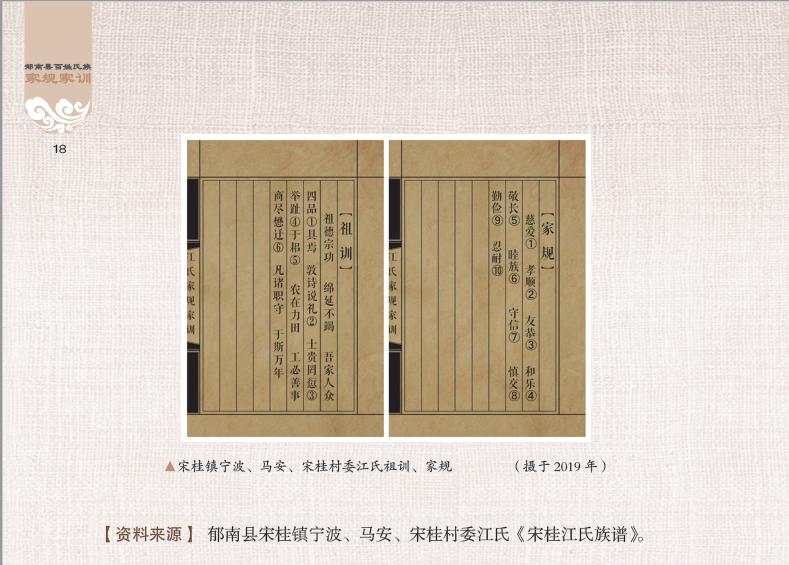 郁南县百姓氏族
家规家训
18
【家规】
慈爱① 孝顺② 友恭③ 和乐④
敬长⑤ 睦族⑥ 守信⑦ 慎交⑧
勤俭⑨ 忍耐⑩
江氏家规家训
【祖训】
祖德宗功 绵延不竭 吾家人众
四品①具焉 敦诗说礼② 士贵罔愆③
举趾④于耜⑤ 农在力田 工必善事
商尽懋迁⑥ 凡诸职守 于斯万年
江氏家规家训
▲宋桂镇宁波、马安、宋桂村委江氏祖训、家规 （摄于2019年）
【资料来源】 郁南县宋桂镇宁波、马安、宋桂村委江氏《宋桂江氏族谱》。